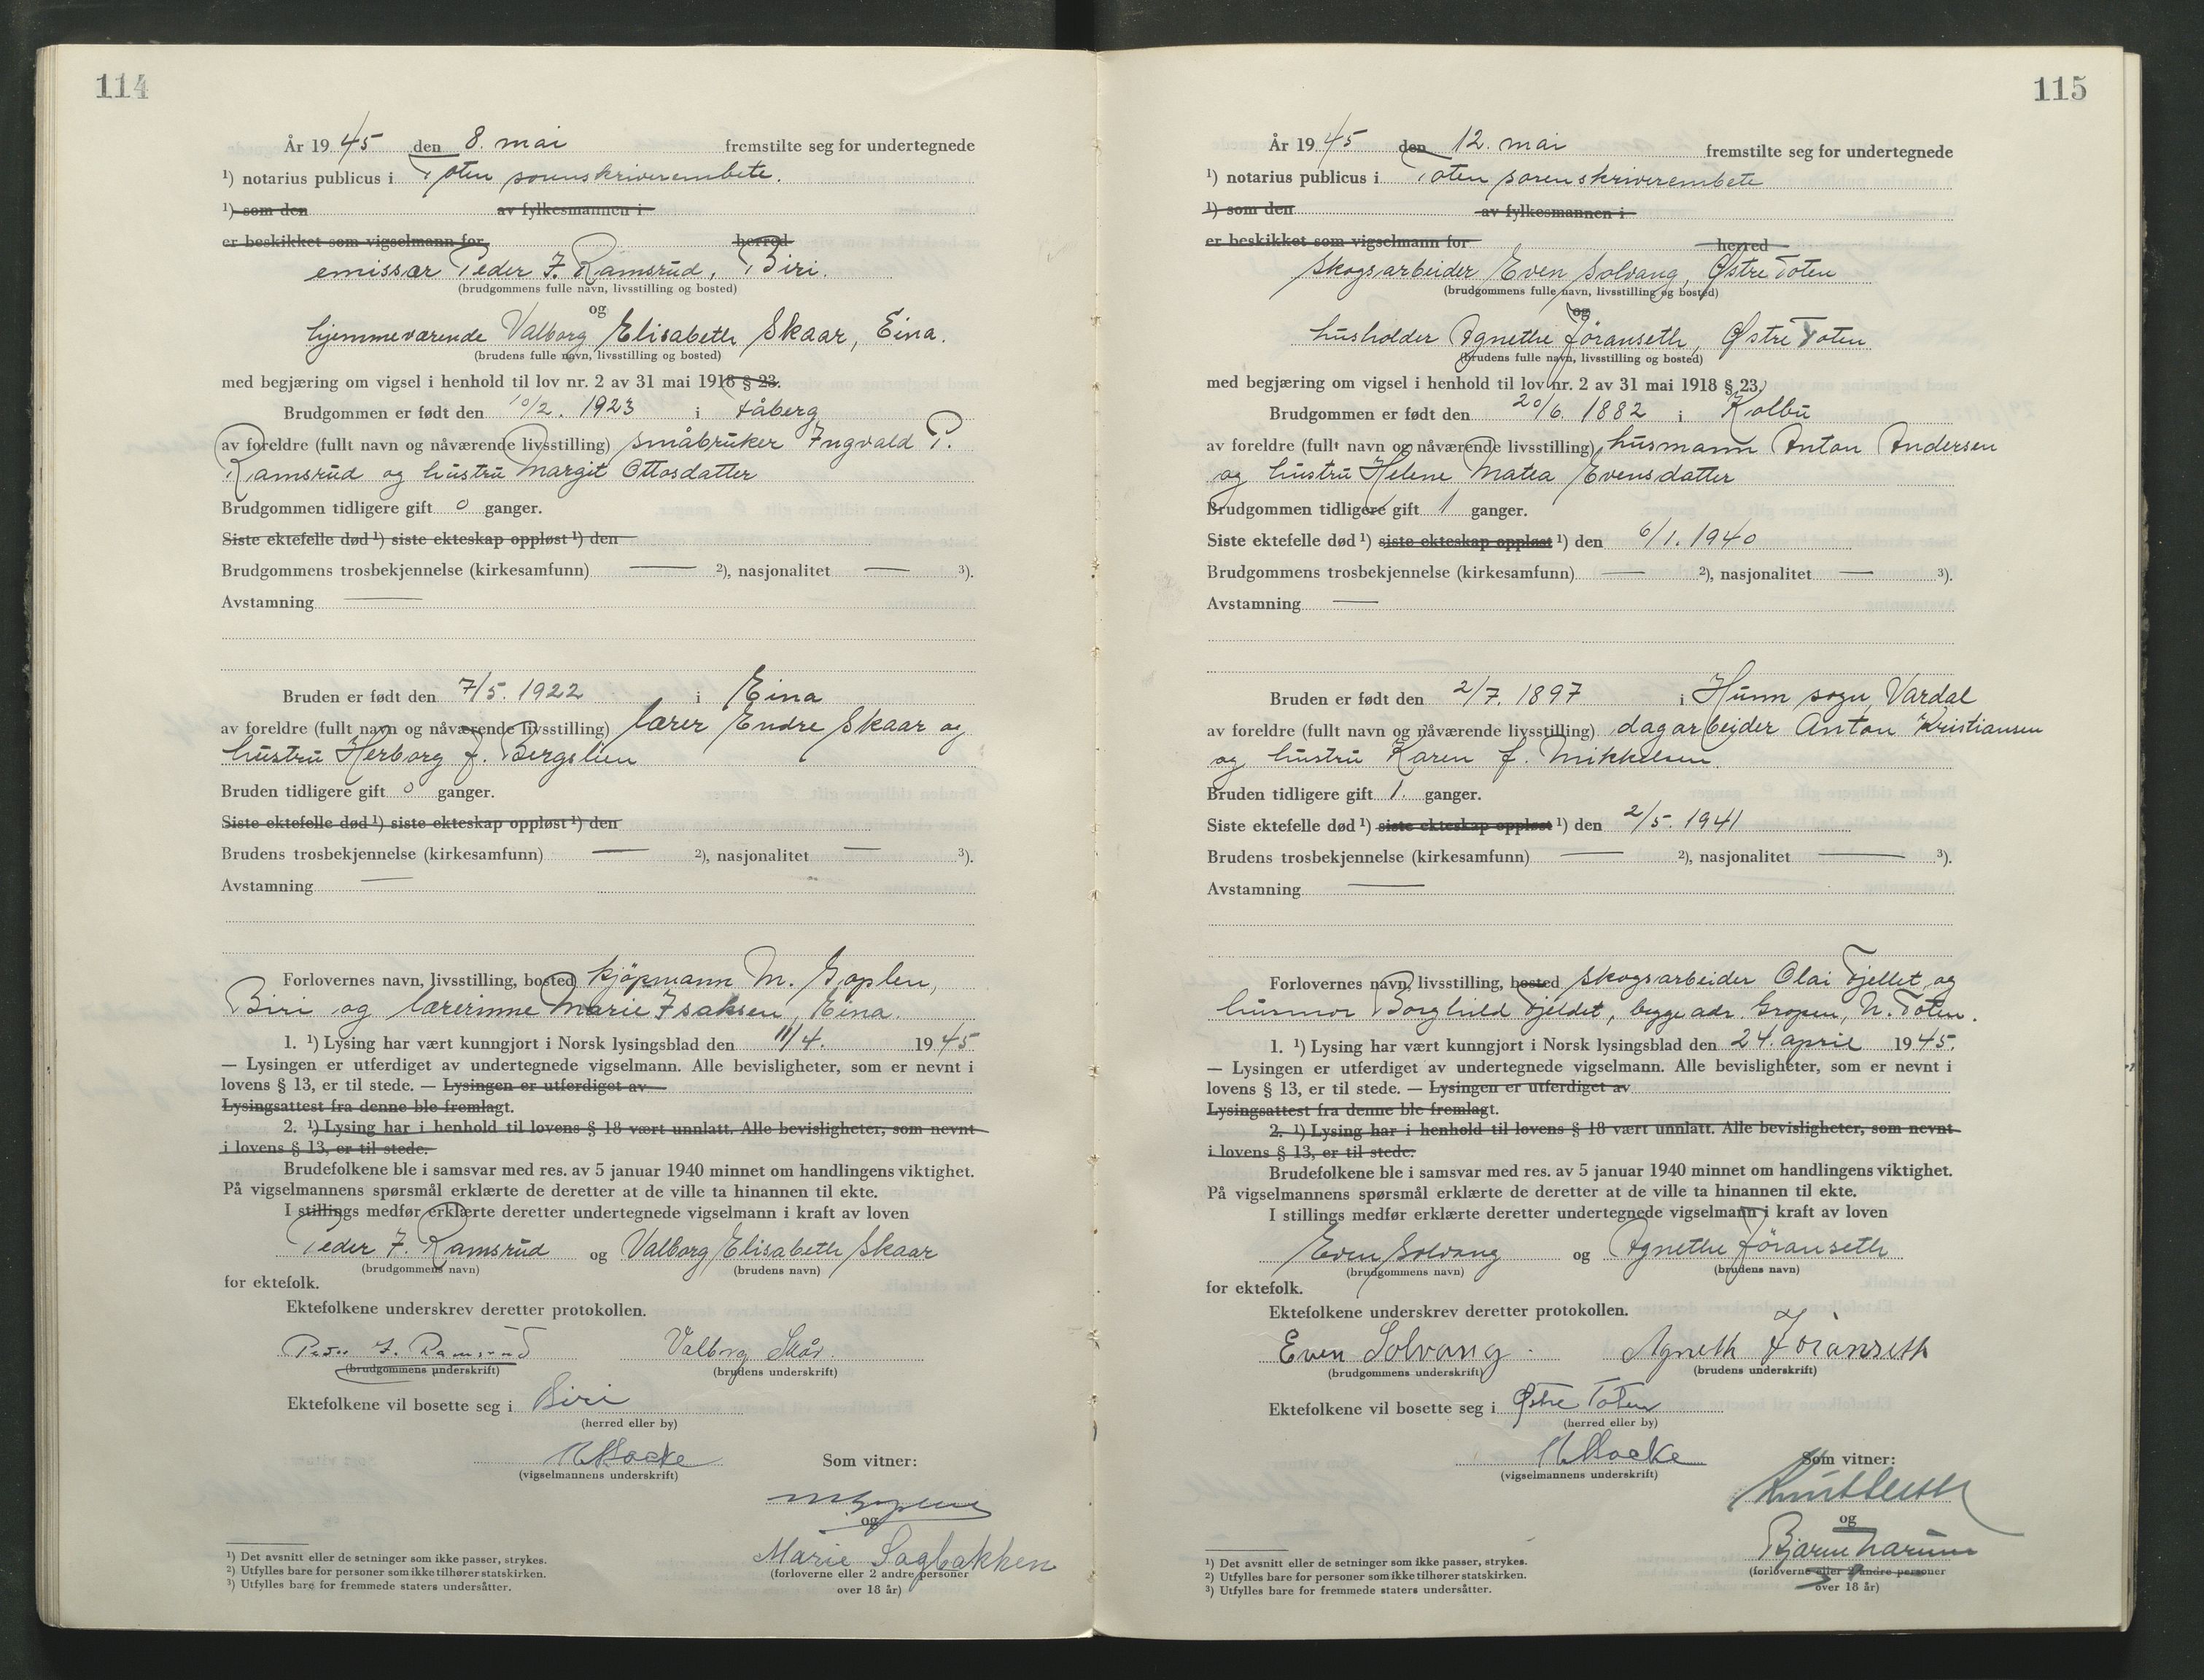 114
År 1945 den 8. mai fremstilte seg for undertegnede
¹) notarius publicus i Toten sorenskriverembete.
¹) som den av fylkesmannen i
er beskikket som vigselmann for herred
emissær Peder I. Ramsrud, Biri.
(brudgommens fulle navn, livsstilling og bosted)
og
hjemmeværende Valborg Elisabeth Skaar, Eina.
(brudens fulle navn, livsstilling og bosted)
med begjæring om vigsel i henhold til lov nr. 2 av 31 mai 1918 § 23.
Brudgommen er født den 10/2. 1923 i Fåberg
av foreldre (fullt navn og nåværende livsstilling) småbruker Ingvald P.
Ramsrud og hustru Margit Ottosdatter
Brudgommen tidligere gift 0 ganger.
Siste ektefelle død ¹) siste ekteskap oppløst ¹) den
Brudgommens trosbekjennelse (kirkesamfunn) — ²), nasjonalitet — ³).
Avstamning —
Bruden er født den 7/5. 1922 i Eina
av foreldre (fullt navn og nåværende livsstilling) lærer Endre Skaar og
hustru Herborg f. Bergslien
Bruden tidligere gift 0 ganger.
Siste ektefelle død ¹) siste ekteskap oppløst ¹) den
Brudens trosbekjennelse (kirkesamfunn) — ²), nasjonalitet — ³).
Avstamning —
Forlovernes navn, livsstilling, bosted kjøpmann M. Goplen,
Biri og lærerinne Marie Isaksen, Eina.
1. ¹) Lysing har vært kunngjort i Norsk lysingsblad den 11/4. 1945
— Lysingen er utferdiget av undertegnede vigselmann. Alle bevisligheter, som er nevnt i
lovens § 13, er til stede. — Lysingen er utferdiget av
Lysingsattest fra denne ble fremlagt.
2. ¹) Lysing har i henhold til lovens § 18 vært unnlatt. Alle bevisligheter, som nevnt
i lovens § 13, er til stede.
Brudefolkene ble i samsvar med res. av 5 januar 1940 minnet om handlingens viktighet.
På vigselmannens spørsmål erklærte de deretter at de ville ta hinannen til ekte.
I stillings medfør erklærte deretter undertegnede vigselmann i kraft av loven
Peder I. Ramsrud og Valborg Elisabeth Skaar
(brudgommens navn) (brudens navn)
for ektefolk.
Ektefolkene underskrev deretter protokollen.
Peder I. Ramsrud Valborg Skår.
(brudgommens underskrift) (brudens underskrift)
Ektefolkene vil bosette seg i Biri
(herred eller by)
Som vitner:
(vigselmannens underskrift)
og
Marie Sagbakken
(forloverne eller 2 andre personer
over 18 år)
¹) Det avsnitt eller de setninger som ikke passer, strykes.
²) Utfylles bare for personer som ikke tilhører statskirken.
³) Utfylles bare for fremmede staters undersåtter.
115
År 1945 den 12. mai fremstilte seg for undertegnede
¹) notarius publicus i Toten sorenskriverembete
¹) som den av fylkesmannen i
er beskikket som vigselmann for herred
skogsarbeider Even Solvang, Østre Toten
(brudgommens fulle navn, livsstilling og bosted)
og
husholder Agnethe Jøranseth, Østre Toten
(brudens fulle navn, livsstilling og bosted)
med begjæring om vigsel i henhold til lov nr. 2 av 31 mai 1918 § 23.
Brudgommen er født den 20/6. 1882 i Kolbu
av foreldre (fullt navn og nåværende livsstilling) husmann Anton Andersen
og hustru Helene Matea Evensdatter
Brudgommen tidligere gift 1 ganger.
Siste ektefelle død ¹) siste ekteskap oppløst ¹) den 6/1. 1940
Brudgommens trosbekjennelse (kirkesamfunn) — ²), nasjonalitet — ³).
Avstamning —
Bruden er født den 2/7. 1897 i Hunn sogn, Vardal
av foreldre (fullt navn og nåværende livsstilling) dagarbeider Anton Kristiansen
og hustru Karen f. Mikkelsen.
Bruden tidligere gift 1. ganger.
Siste ektefelle død ¹) siste ekteskap oppløst ¹) den 2/5. 1941
Brudens trosbekjennelse (kirkesamfunn) — ²), nasjonalitet — ³).
Avstamning —
Forlovernes navn, livsstilling, bosted skogsarbeider Olai Fjellet og
husmor Borghild Fjeldet, begge adr. Gropen, N. Toten.
1. ¹) Lysing har vært kunngjort i Norsk lysingsblad den 24. april 1945.
— Lysingen er utferdiget av undertegnede vigselmann. Alle bevisligheter, som er nevnt i
lovens § 13, er til stede. — Lysingen er utferdiget av
Lysingsattest fra denne ble fremlagt.
2. ¹) Lysing har i henhold til lovens § 18 vært unnlatt. Alle bevisligheter, som nevnt
i lovens § 13, er til stede.
Brudefolkene ble i samsvar med res. av 5 januar 1940 minnet om handlingens viktighet.
På vigselmannens spørsmål erklærte de deretter at de ville ta hinannen til ekte.
I stillings medfør erklærte deretter undertegnede vigselmann i kraft av loven
Even Solvang og Agnethe Jøranseth
(brudgommens navn) (brudens navn)
for ektefolk.
Ektefolkene underskrev deretter protokollen.
Even Solvang. Agneth Jøranseth
(brudgommens underskrift) (brudens underskrift)
Ektefolkene vil bosette seg i Østre Toten
(herred eller by)
Som vitner:
(vigselmannens underskrift)
og
Bjarne
(forloverne eller 2 andre personer
over 18 år)
¹) Det avsnitt eller de setninger som ikke passer, strykes.
²) Utfylles bare for personer som ikke tilhører statskirken.
³) Utfylles bare for fremmede staters undersåtter.